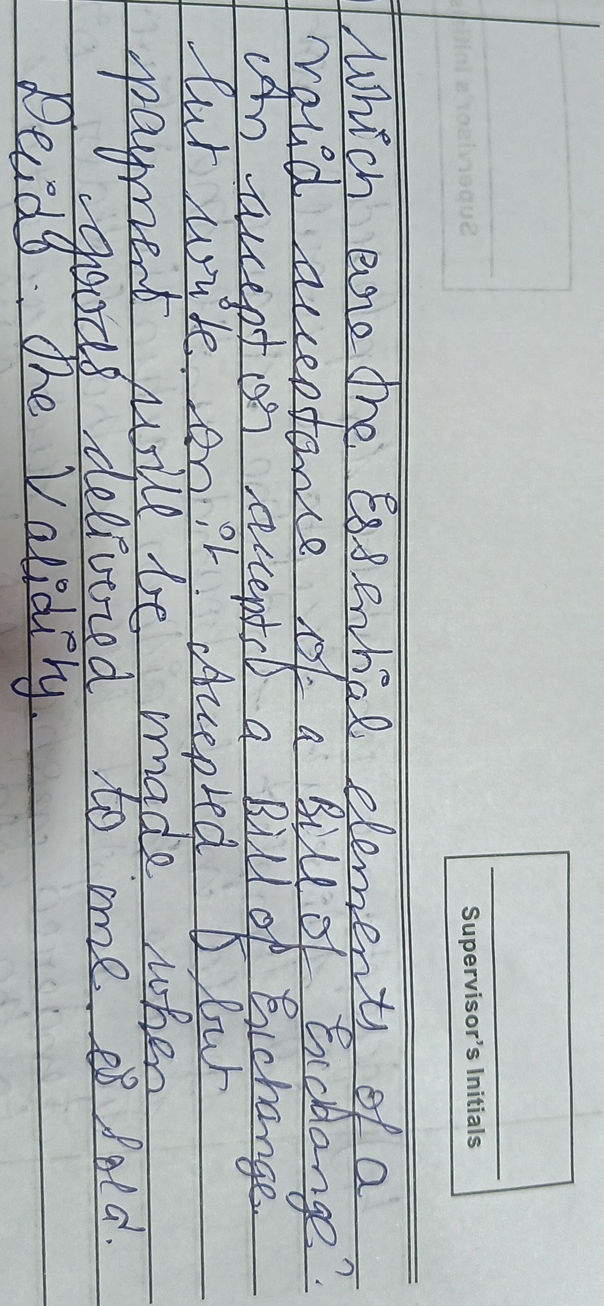 Supervisor's Initials
Which are the Essential elements of a
valid acceptance of a Bill of Exchange?
An acceptor accepts a Bill of Exchange.
but write on it. Accepted but
payment will be made when
goods delivered to me is sold.
Decide the Validity.